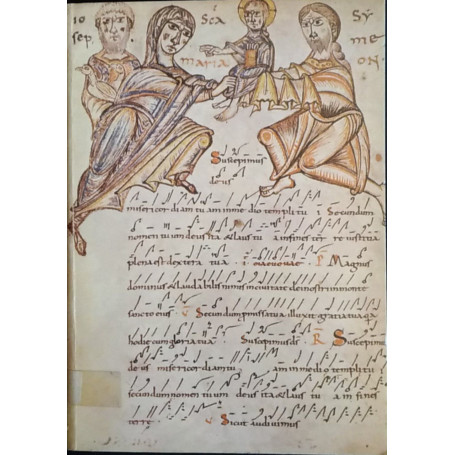 IO SCA SY
sep. MARIA ME ON:
Suscepimus
deus
misericordiam tu am inme dio templi tu i Secundum
nomen tuum deus ita &laus tu a infines ter re iustitia
plena est dextera tua P Magnus
dominus &laudabilis nimis incivitate dei nostri inmonte
sancto eius V Secundum
hodie cum gloria tua Suscepimus ds R Suscepimus
deus misericordiam tu am in medio templi tu i
secundum nomen tuum deus ita &laus tu a in fines
terre V Sicut audivimus